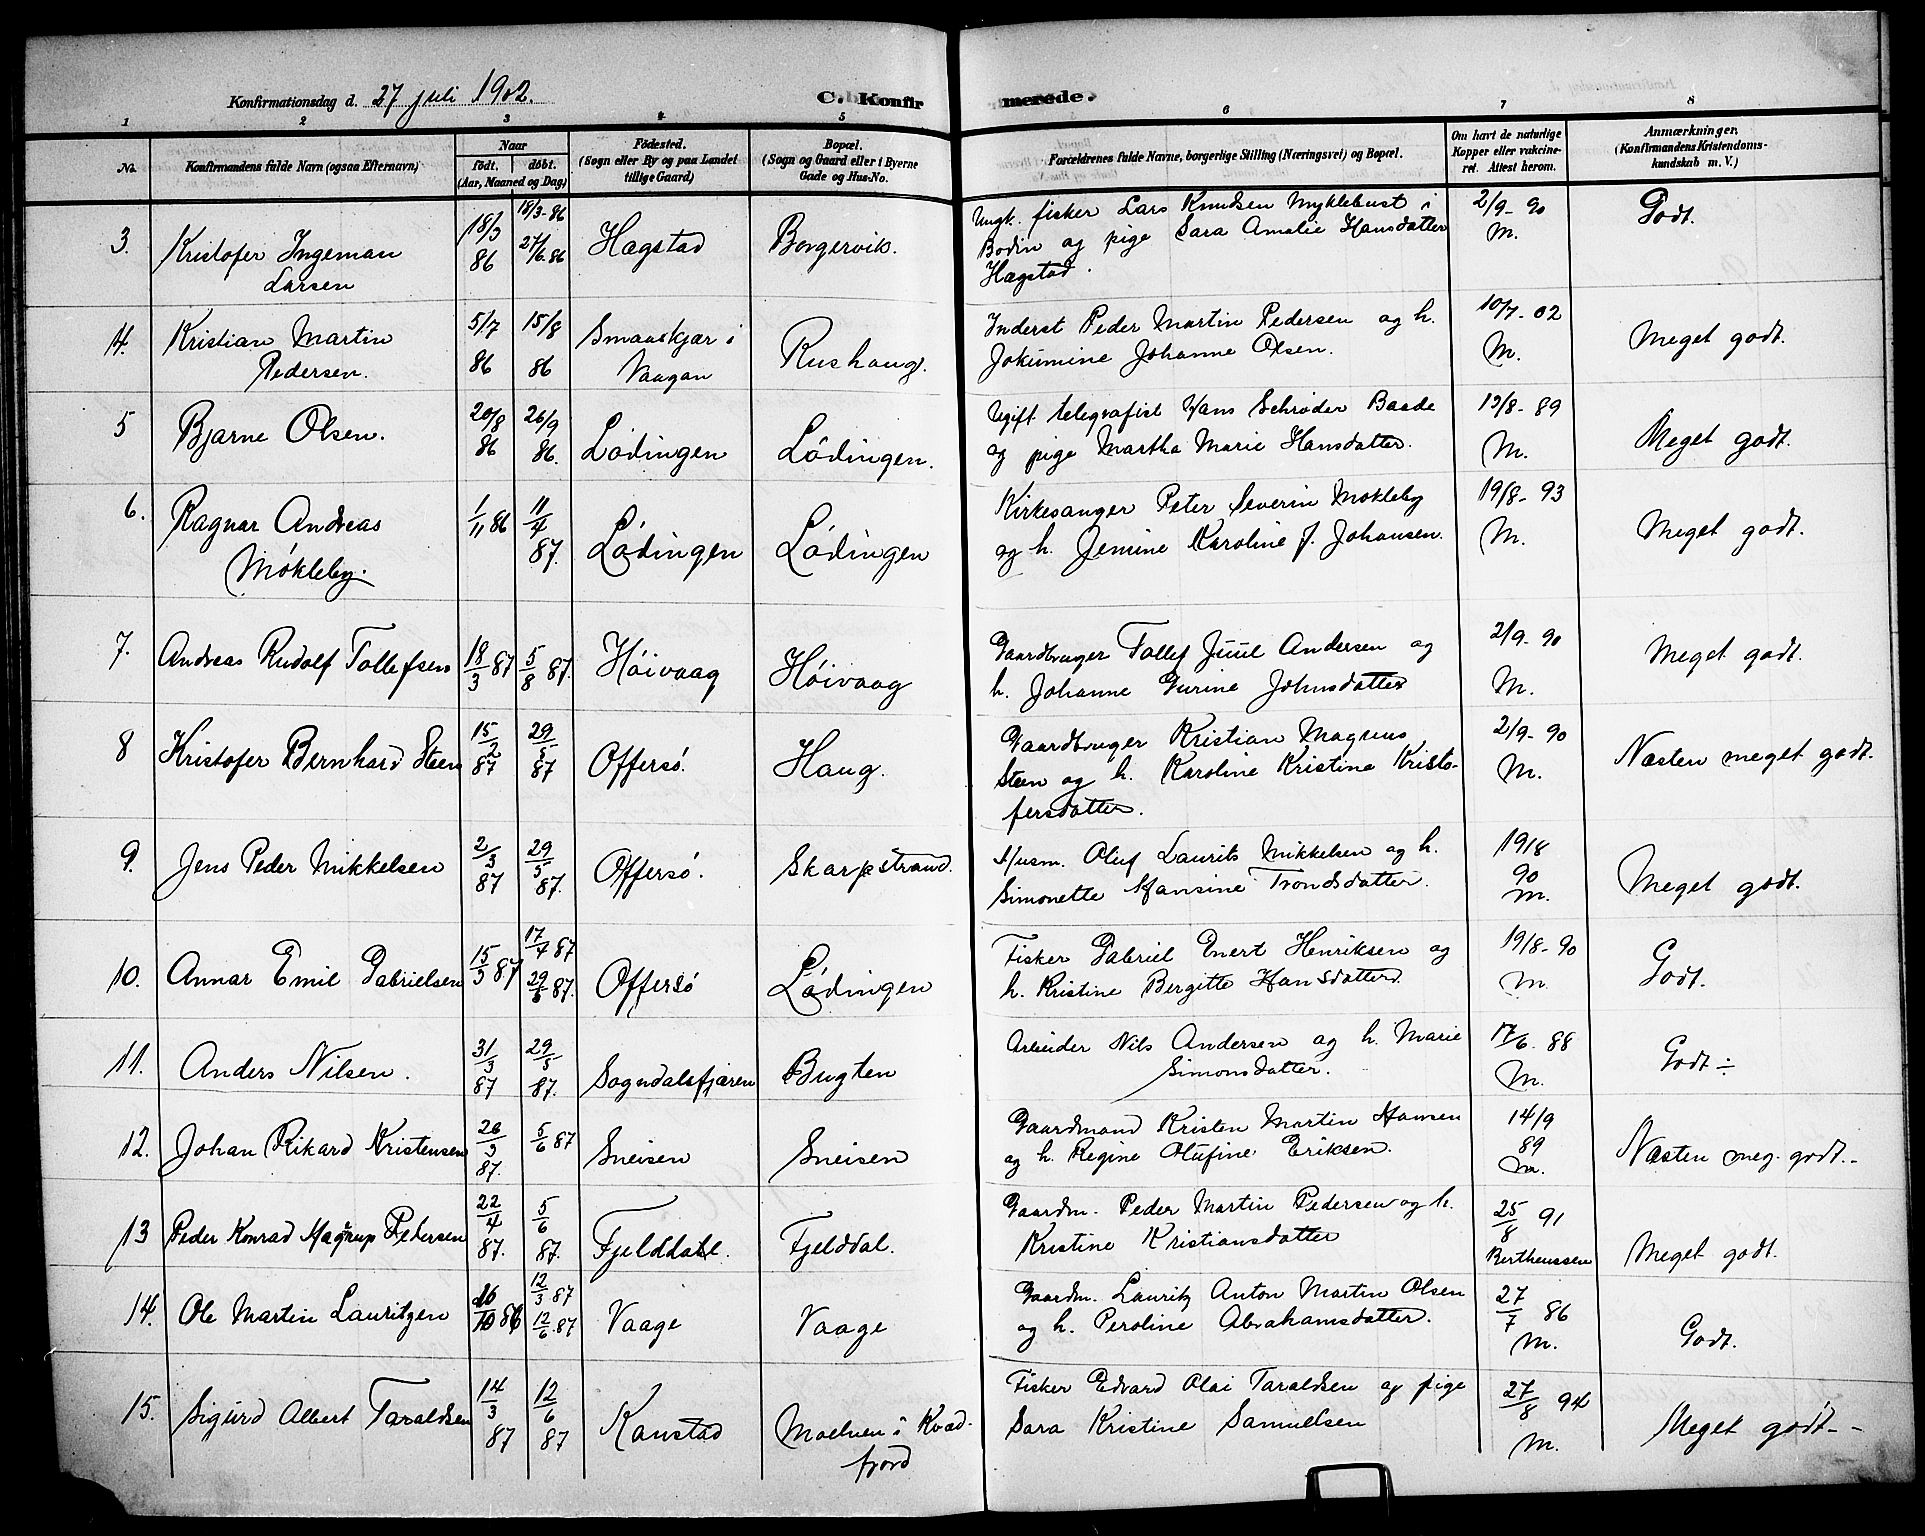 Konfirmationsdag d. 27 juli 1902.
C. Konfirmerede.
1 2 3 4 5 6 7 8
No.
Konfirmandens fulde Navn (ogsaa Efternavn)
Naar
födt. döbt.
(Aar, Maaned og Dag)
Födested.
(Sogn eller By og paa Landet
tillige Gaard)
Bopæl.
(Sogn og Gaard eller i Byerne
Gade og Hus-No.
Forældrenes fulde Navne, borgerlige Stilling (Næringsvei) og Bopæl.
Om havt de naturlige
Kopper eller vakcine-
ret. Attest herom.
Anmærkninger.
(Konfirmandens Kristendoms-
kundskab m. V.)
3. Kristofer Ingeman
Larsen
18/3 86
18/3-86
27/6.86
Hægstad
Borgervik.
Ungk. fisker Lars Knudsen Myklebust i
Bodin og pige Sara Amalie Hansdatter
Hægstad.
2/9-90
M.
Godt.
4. Kristian Martin
Pedersen.
5/7 86
15/8 86
Smaaskjær i
Vaagan
Rushaug.
Inderst Peder Martin Pedersen og h.
Jokumine Johanne Olsen.
10/7-02
M.
Meget godt.
5 Bjarne Olsen.
20/8 86
26/9 86.
Lödingen
Lödingen.
Ugift telegrafist Hans Schrøder Baade
og pige Martha Marie Hansdatter.
19/8-89
M.
Meget godt.
6. Ragnar Andreas
Mökleby.
1/11 86
11/4 87.
Lödingen
Lödingen
Kirkesanger Peter Severin Mökleby
og h. Jemine Karoline f. Johansen.
19/8-93
M.
Meget godt.
7. Andreas Rudolf Tollefsen
18/3 87
5/8 87.
Höivaag
Höivaag
Gaardbruger Tollef Juul Andersen og
h. Johanne Gurine Johnsdatter
2/9-90
M.
Meget godt.
8 Kristofer Bernhard Steen
15/2 87
29/5 87
Offersö.
Haug.
Gaardbruger Kristian Magnus
Steen og h. Karoline Kristine Kristo-
fersdatter.
2/9-90
M.
Næsten meget godt.
9. Jens Peder Mikkelsen
2/3 87
29/5 87.
Offersö.
Skarpstrand.
Husm. Oluf Laurits Mikkelsen og h.
Simonette Hansine Trondsdatter.
19/8
90
M.
Meget godt.
10. Annar Emil Gabrielsen
15/3 87
17/4 87
29/5 87.
Offersö
Lödingen
Fisker Gabriel Enert Henriksen og
h. Kristine Bergitte Hansdatter
19/8-90
M.
Godt.
11. Anders Nilsen.
31/3 87
29/5 87.
Sogndalsfjæren
Bugten
Arbeider Nils Andersen og h. Marie
Simonsdatter.
17/6. 88
M.
Godt ÷
12. Johan Rikard Kristensen
26/3 87.
5/6 87
Sneisen
Sneisen
Gaardmand Kristen Martin Hansen
og h. Regine Olufine Eriksen.
14/9
89
M.
Næsten meg. godt.-
13 Peder Konrad Hagrup Pedersen
22/4 87.
5/6 87.
Fjelddal.
Fjelddal.
Gaardm. Peder Martin Pedersen og h.
Kristine Kristiansdatter
25/8 91
Bertheussen
Meget godt.
14. Ole Martin Lauritzen
12/3 87
12/6.87
Vaage
Vaage
Gaardm. Lauritz Anton Martin Olsen
og h. Peroline Abrahamsdatter.
27/7 86
M.
Godt.
15. Sigurd Albert Taraldsen
14/3 87
12/6 87
Kanstad
Moelven i Kvæd-
fjord
Fisker Edvard Olai Taraldsen og pige
Sara Kristine Samuelsen
27/8 94
M.
Meget godt--